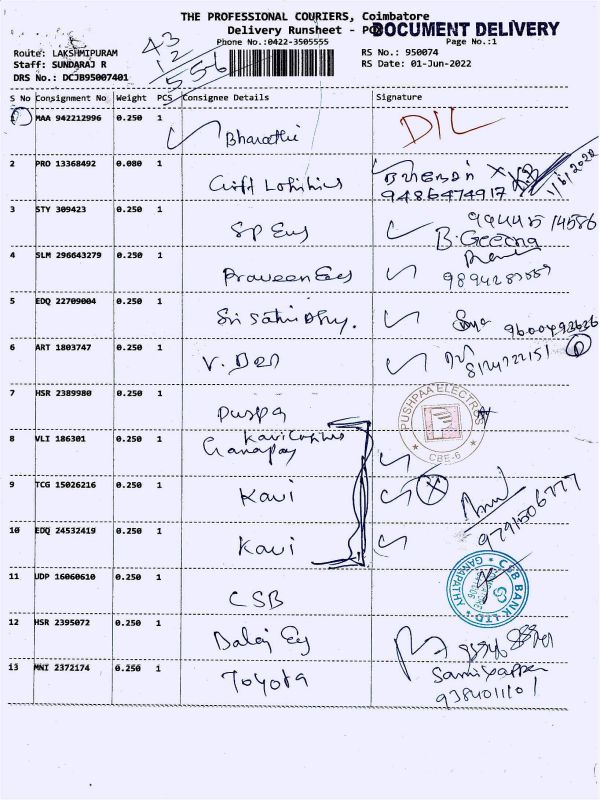 THE PROFESSIONAL COURIERS, Coimbatore
Delivery Runsheet - POD
DOCUMENT DELIVERY
Phone No.:0422-3505555
Page No.:1
Route: LAKSHMIPURAM
RS No.: 950074
Staff: SUNDARAJ R
RS Date: 01-Jun-2022
DRS No.: DCJB95007401
43
12
556
S No Consignment No Weight PCS Consignee Details Signature
1 MAA 942212996 0.250 1 Bharathi DIL
2 PRO 13368492 0.080 1
9486474917 1/6/2022
3 STY 309423 0.250 1 SP Eng
B.Geetha
4 SLM 296643279 0.250 1 Praveen Eng
5 EDQ 22709004 0.250 1
9600492626
6 ART 1803747 0.250 1 V. Den
8124722151
7 HSR 2389980 0.250 1 Puspa
PUSHPAA ELECTROS
CBE-6
8 VLI 186301 0.250 1
Ganapay
9 TCG 15026216 0.250 1 Kavi
9791506777
10 EDQ 24532419 0.250 1 Kavi
11 UDP 16060610 0.250 1 CSB
CSB BANK LTD
GANAPATHY
12 HSR 2395072 0.250 1 Balaj Eng
13 MNI 2372174 0.250 1 Toyota
Samiyappan
9384011101